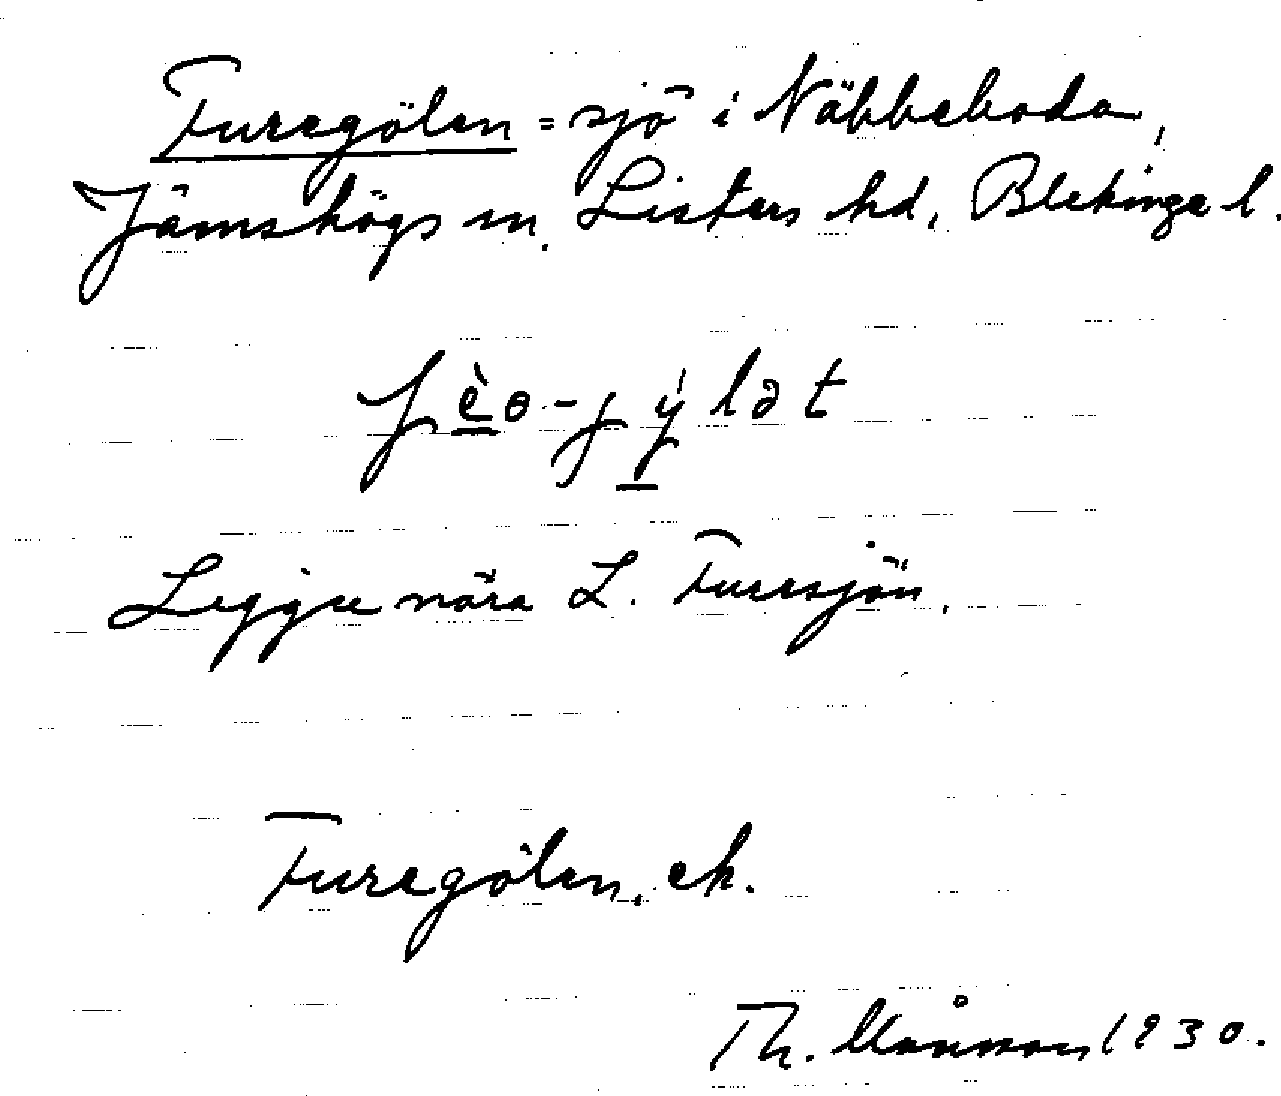 Furegölen = sjö i Näbbeboda,
Jämshögs sn. Listers hd, Blekinge l.
Ligger nära L. Furesjön.
Furegölen, ek.
Th. Månsson 1930.